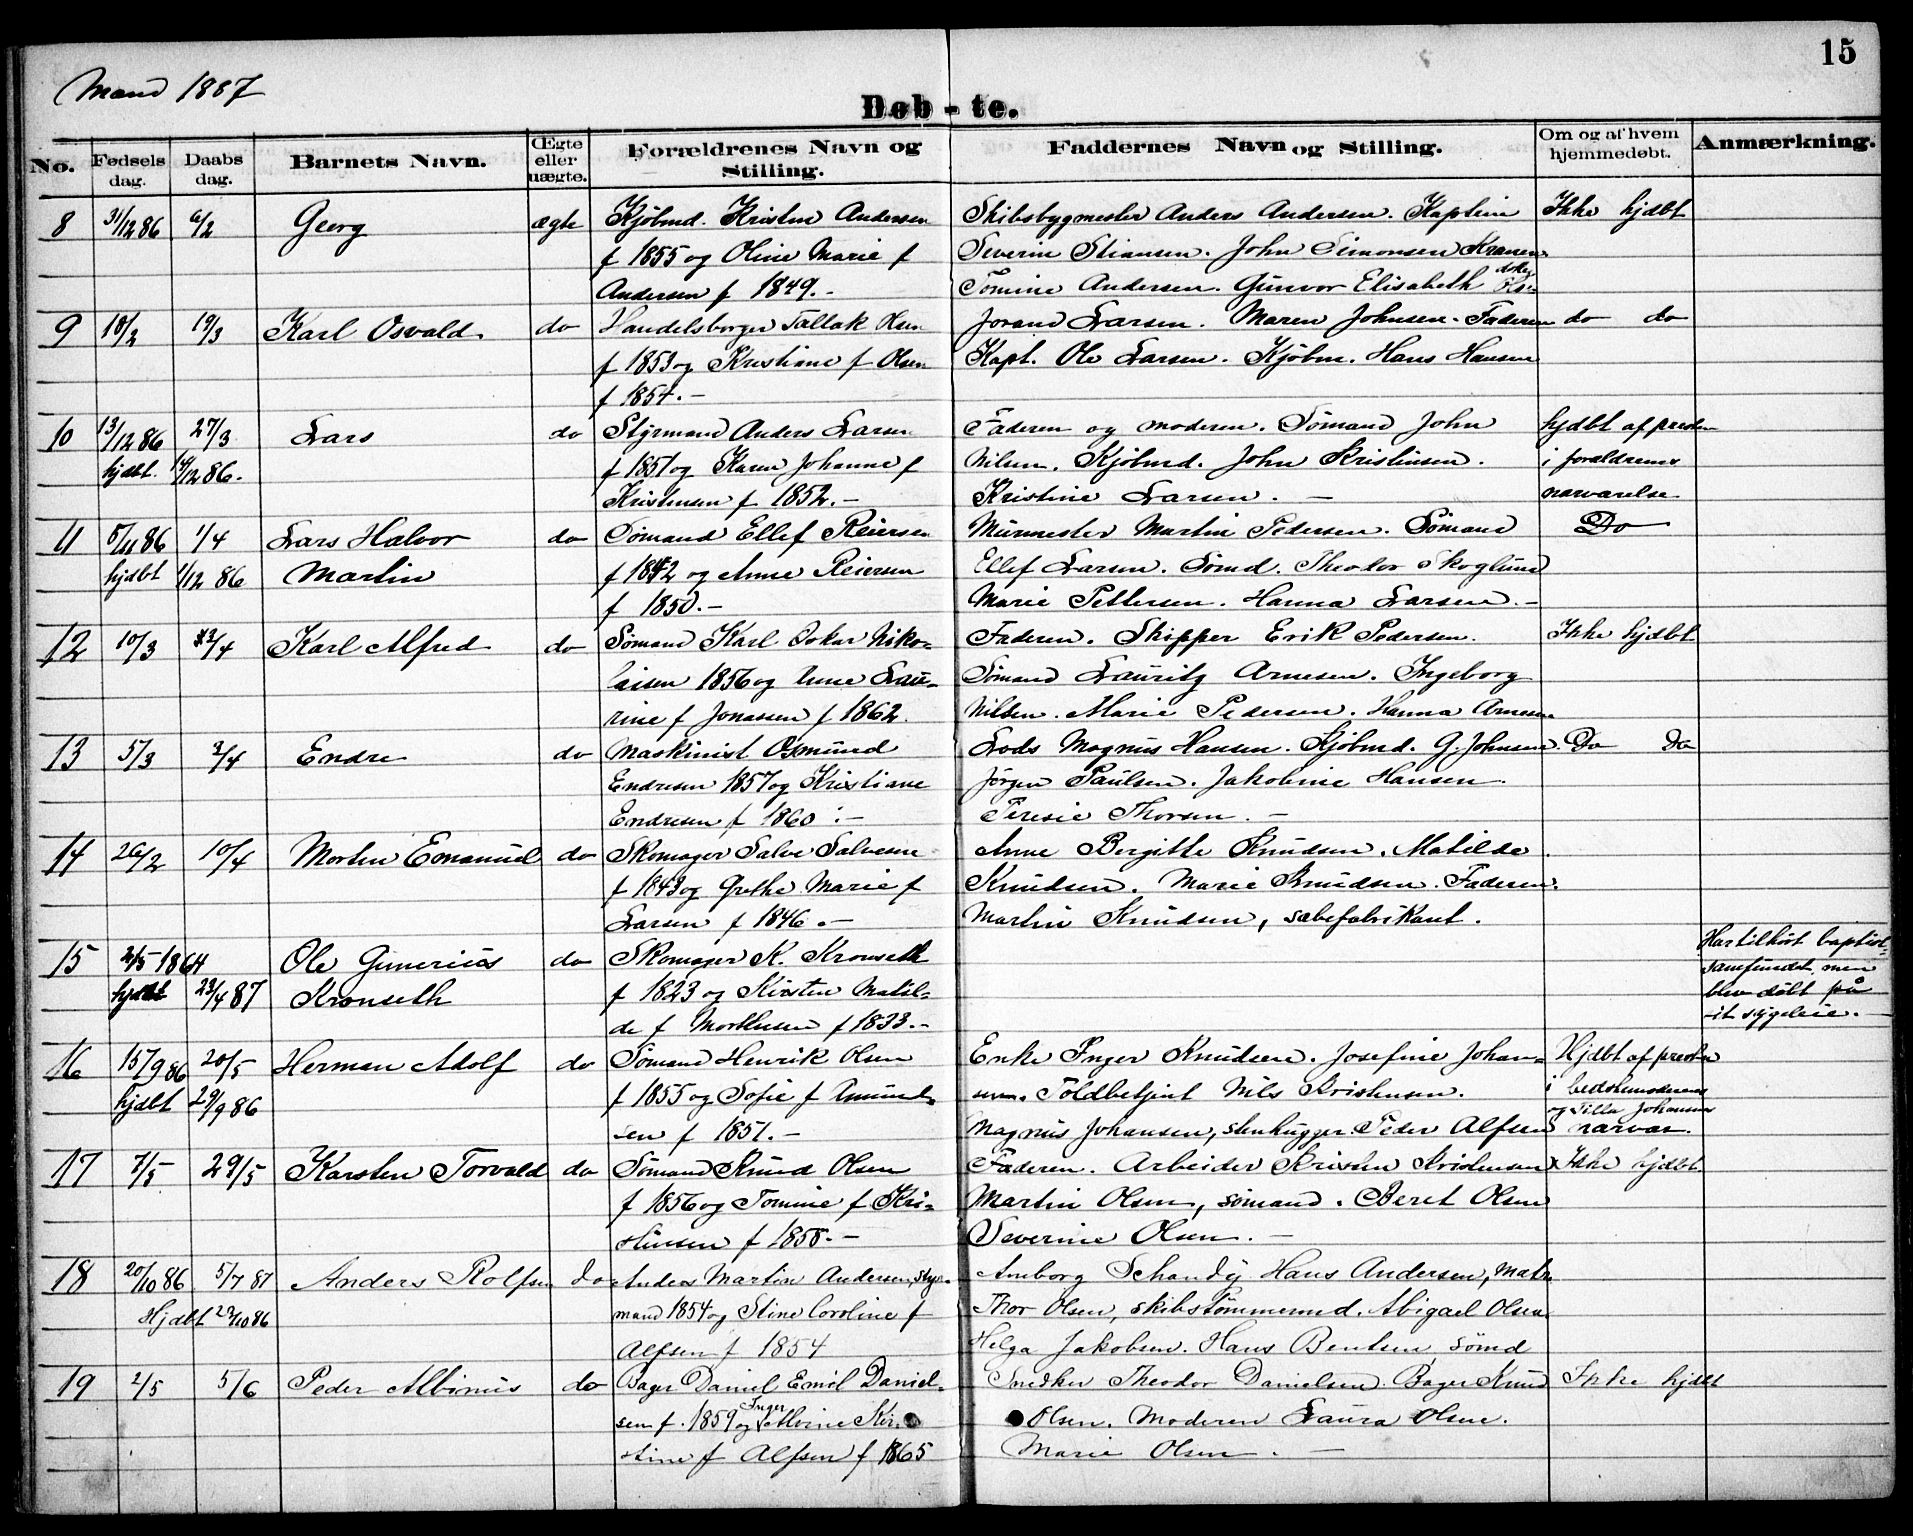 15
Mænd 1887
Døb - te.
No. Fødsels dag. Daabs dag. Barnets Navn. Ægte eller uægte. Forældrenes Navn og Stilling. Faddernes Navn og Stilling. Om og af hvem hjemmedøbt. Anmærkning.
8 31/12 86 6/2 Georg ægte Kjøbmd. Kristen Andersen Skibsbygmester Anders Andersen. Kaptein Ikke hjdbt
f 1855 og Oline Marie f Severin Stiansen. John Simonsen Kranen
Andersen f 1849.- Tomine Andersen. Gunvor Elisabeth
9 18/2 19/3 Karl Osvald do Handelsborger Tallak Olsen Jorand Larsen. Maren Johnsen. Faderen do do
f 1853 og Kristiane f Olsen Kapt. Ole Larsen. Kjøbm. Hans Hansen
f 1854.-
10 13/12 86 27/3 Lars do Styrmand Anders Larsen Faderen og moderen. Sømand John hjdbt af presten
hjdbt. 14/12 86. f 1851 og Karen Johanne f Nilsen. Kjøbmd. John Kristensen. i forældrenes
Kristensen f 1852.- Kristine Larsen. - nærværelse
11 8/11 86 1/4 Lars Halvor do Sømand Ellef Reiersen Murmester Martin Pedersen. Sømand Do
hjdbt 1/12 86 Martin f 1842 og Anne Reiersen Ellef Larsen. Sømd. Theodor Skoglund
f 1850.- Marie Pettersen. Hanna Larsen.-
12 10/3 /4 Karl Alfred do Sømand Karl Oskar Niko- Faderen. Skipper Erik Pedersen. Ikke hjdbt
laisen 1856 og Anne Lau- Sømand Lauritz Arnesen. Ingeborg
rine f Jonassen f 1862. Nilsen. Marie Pedersen. Hanna Arnesen
13 5/3 2/4 Endre do Maskinist Osmund Lods Magnus Hansen. Kjøbmd. G. Johnsen. Do Do
Endresen 1857 og Kristiane Jørgen Paulsen. Jakobine Hansen.
Endresen f 1860.- Teresie Thorsen. -
14 26/2 10/4 Morten Emanuel do Skomager Salve Salvesen Anne Birgitte Knudsen. Matilde
f 1843 og Grethe Marie f Knudsen. Marie Knudsen. Faderen.
Larsen f 1846.- Martin Knudsen, sæbefabrikant.
15 2/5 1864 Ole Gunerius do Skomager K. Kronseth Har tilhørt baptist-
hjdbt 23/4 87 Kronseth f 1823 og Kirsten Matil- samfundet, men
de f Morthensen f 1833.- blev døbt på
sit sygeleie.-
16 15/9 86 20/5 Herman Adolf do Sømand Henrik Olsen Enke Inger Knudsen. Josefine Johan- Hjdbt af presten
hjdbt 29/9 86 f 1855 og Sofie f Amund- sen. Toldbetjent Nils Kristensen. i bedstemoderens
sen f 1851.- Magnus Johansen, stenhugger. Peder Alfsen og Tilla Johansens nærvær.
17 7/5 29/5 Karsten Torvald do Sømand Knud Olsen Faderen. Arbeider Kristen Kristensen Ikke hjdbt
f 1856 og Tomine f Kri- Martin Olsen, sømand. Beret Olsen
stensen f 1858.- Severine Olsen. -
18 20/10 86 5/7 87 Anders Rolfsen do Anders Martin Andersen, styr- Amborg Schandy Hans Andersen, matr.
Hjdbt 29/10 86 mand 1854 og Stine Caroline f Thor Olsen, skibstømmermd. Abigael Olsen
Alfsen f 1854 Helga Jakobsen. Hans Bentsen sømd
19 2/5 5/6 Peder Albinus do Bager Daniel Emil Daniel- Snedker Theodor Danielsen. Bager Knud Ikke hjdbt
sen f. 1859 og Inger Albine Kir- Olsen. Moderen Laura Olsen.
stine f Alfsen f 1865 Marie Olsen. -